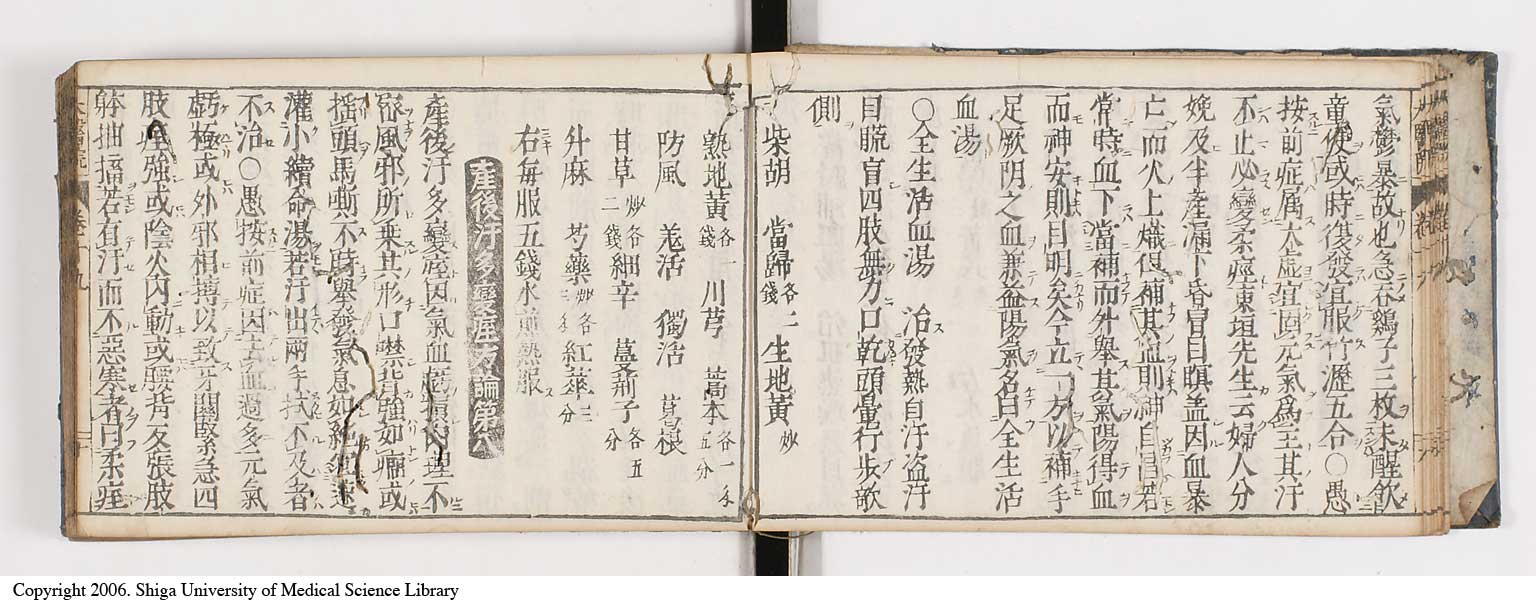 氣鬱暴故也急呑鷄子三枚未醒飲
童便或時復發宜服竹瀝五合○愚
按前症属太虚宜固元氣爲主其汗
不止必變柔痓東垣先生云婦人分
娩及半産漏下昏冒目瞑蓋因血暴
亡而火上熾但補其血則神自昌若
常時血下當補而升舉其氣陽得血
而神安則目明矣今立一方以補手
足厥陰之血兼益陽氣名曰全生活
血湯
○全生活血湯　治發熱自汗盗汗
目䀮盲四肢無力口乾頭暈行歩欹
側
柴胡　當歸各二錢　生地黄炒
熟地黄各一錢　川芎　藁本各一錢五分
防風　羗活　獨活　葛根
甘草炒各二錢　細辛　蔓荊子各五分
升麻　芍藥炒各三錢　紅花三分
右毎服五錢水煎熱服
産後汗多變痓方論第八
産後汗多變痓因氣血虧損肉理不
宻風邪所乗其形口噤背強如癇或
揺頭馬嘶不時舉發氣息如絶宜速
灌小續命湯若汗出兩手拭不及者
不治○愚按前症因去血過多元氣
虧極或外邪相搏以致牙關緊急四
肢痓強或陰火内動或腰背反張肢
躰抽搐若有汗而不惡寒者曰柔痓
卷十九